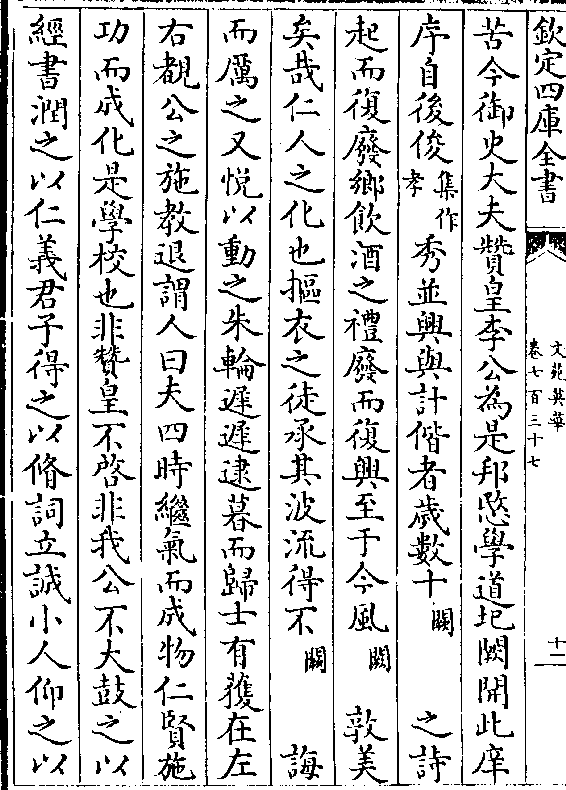 欽定四庫全書
文苑英華
卷七百三十七
十一
苦今御史大夫贊皇李公為是邦愍學道圮闕開此庠
序自後俊集作孝秀並興與計偕者歲數十闕之詩
起而復廢鄉飲酒之禮廢而復興至于今風闕敦美
矣哉仁人之化也摳衣之徒承其波流得不闕誨
而厲之又悅以動之朱輪遲遲逮暮而歸士有獲在左
右覩公之施教退謂人曰夫四時繼氣而成物仁賢施
功而成化是學校也非贊皇不啓非我公不大鼓之以
經書潤之以仁義君子得之以脩詞立誠小人仰之以